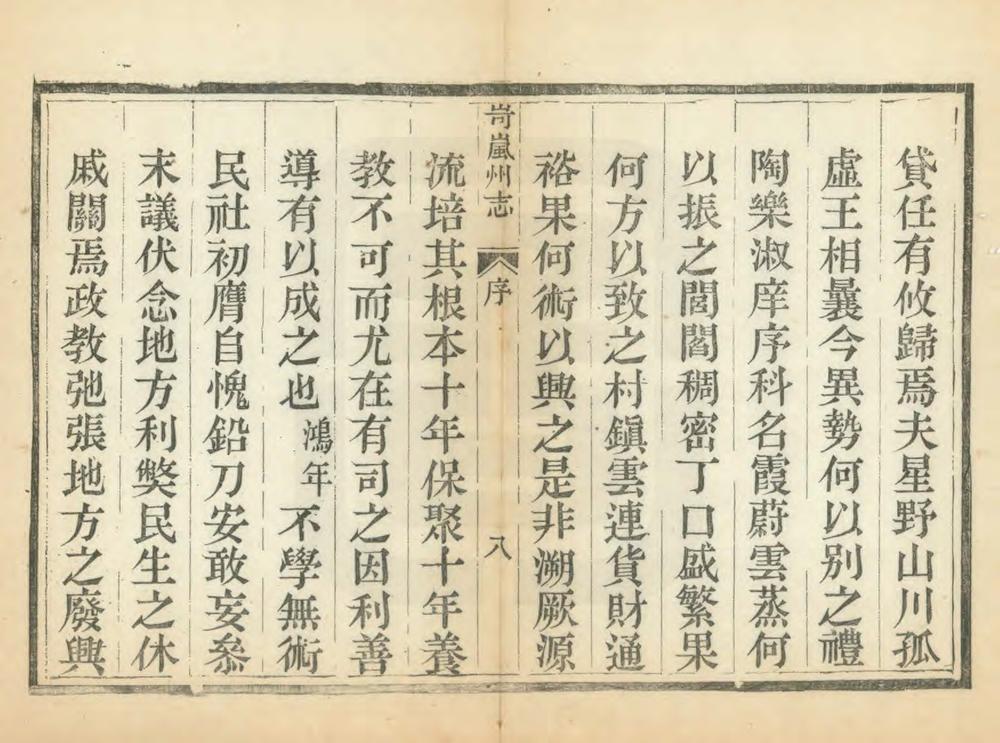 貸任有攸歸焉夫星野山川孤
虛王相曩今異勢何以别之禮
陶樂淑庠序科名霞蔚雲蒸何
以振之閭閻稠密丁口盛繁果
何方以致之村鎭雲連貨財通
裕果何術以興之是非溯厥源
岢嵐州志 序 八
流培其根本十年保聚十年養
教不可而尤在有司之因利善
導有以成之也鴻年不學無術
民社初膺自愧鉛刀安敢妄叅
末議伏念地方利獘民生之休
戚關焉政教弛張地方之廢興